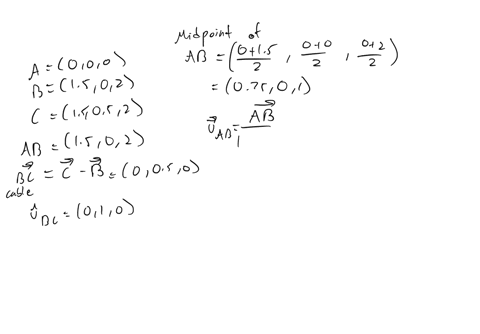 A = (0,0,0)
B = (1.5,0,2)
C = (1.5,0.5,2)
AB = (1.5,0,2)
BC = C - B = (0,0.5,0)
cable
û BC = (0,1,0)
Midpoint of
AB = (0+1.5/2, 0+0/2, 0+2/2)
= (0.75,0,1)
u AB = AB/